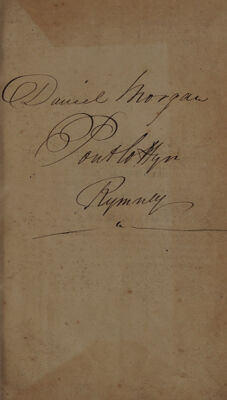 Daniel Morgan
Pontlottyn
Rymney